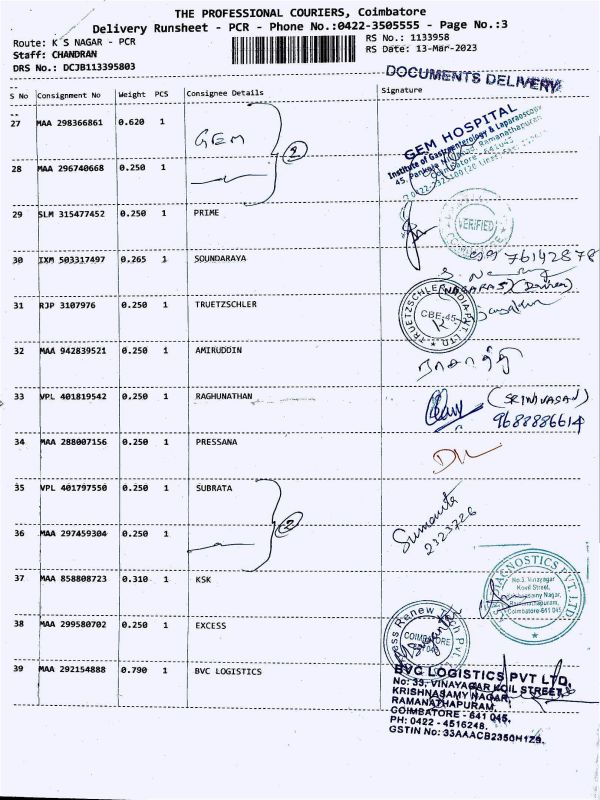 THE PROFESSIONAL COURIERS, Coimbatore
Delivery Runsheet - PCR - Phone No.:0422-3505555 - Page No.:3
Route: K S NAGAR - PCR
RS No.: 1133958
Staff: CHANDRAN
RS Date: 13-Mar-2023
DRS No.: DCJB113395803
DOCUMENTS DELIVERY
S No Consignment No Weight PCS Consignee Details Signature
27 MAA 298366861 0.620 1 GEM
2
GEM HOSPITAL
Institute of Gastroenterology & Laparoscopy
28 MAA 296740668 0.250 1
29 SLM 315477452 0.250 1 PRIME
VERIFIED
30 IXM 503317497 0.265 1 SOUNDARAYA
31 RJP 3107976 0.250 1 TRUETZSCHLER
TRUETZSCHLER INDIA PVT LTD.
CBE-45
32 MAA 942839521 0.250 1 AMIRUDDIN
33 VPL 401819542 0.250 1 RAGHUNATHAN
(SRINIVASAN)
9688886614
34 MAA 288007156 0.250 1 PRESSANA
35 VPL 401797550 0.250 1 SUBRATA
2
2323726
36 MAA 297459304 0.250 1
37 MAA 858808723 0.310 1 KSK
DIAGNOSTICS PVT LTD
No.3, Vinayagar
Kovil Street,
Krishnasamy Nagar,
Ramanathapuram,
Coimbatore-641 045
38 MAA 299580702 0.250 1 EXCESS
Renew Tech Pvt
COIMBATORE
39 MAA 292154888 0.790 1 BVC LOGISTICS
BVC LOGISTICS PVT LTD,
No: 33, VINAYAGAR KOIL STREET,
KRISHNASAMY NAGAR,
RAMANATHAPURAM,
COIMBATORE - 641 045.
PH: 0422 - 4516248.
GSTIN No: 33AAACB2350H1Z9.